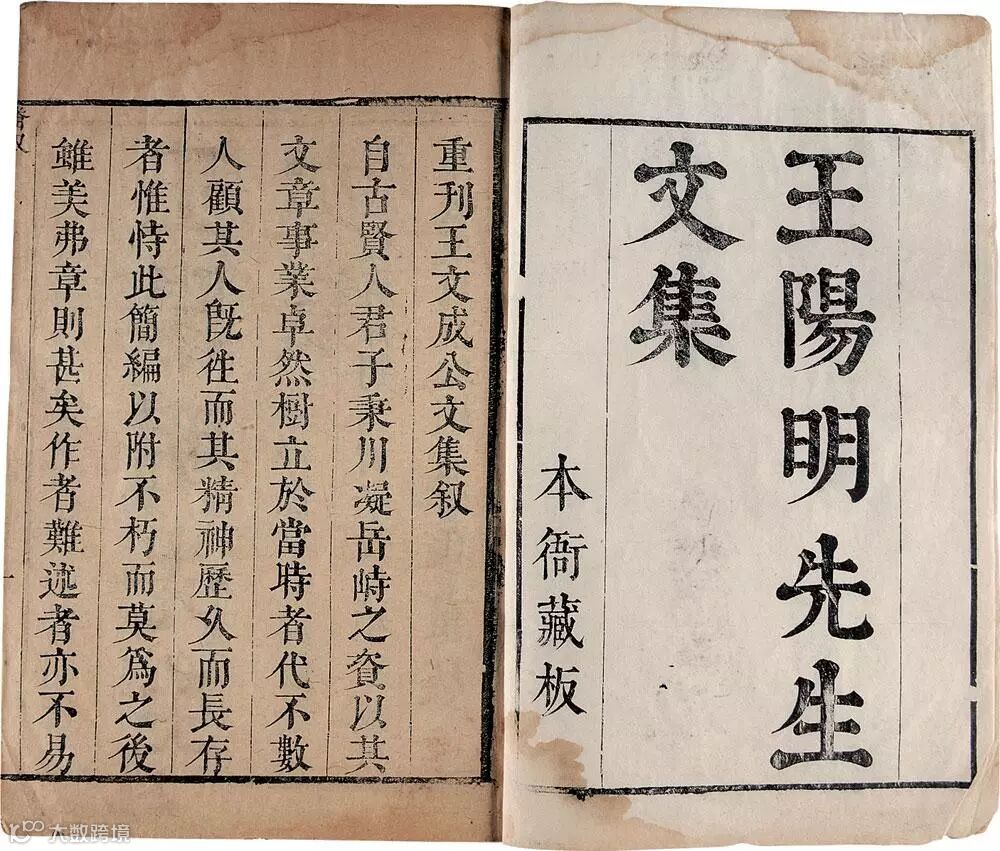 王陽明先生
文集
本衙藏板
重刊王文成公文集叙
自古賢人君子秉川凝岳峙之資以其
文章事業卓然樹立於當時者代不數
人顧其人既徃而其精神歷久而長存
者惟恃此簡編以附不朽而莫爲之後
雖美弗章則甚矣作者難述者亦不易
大数跨境